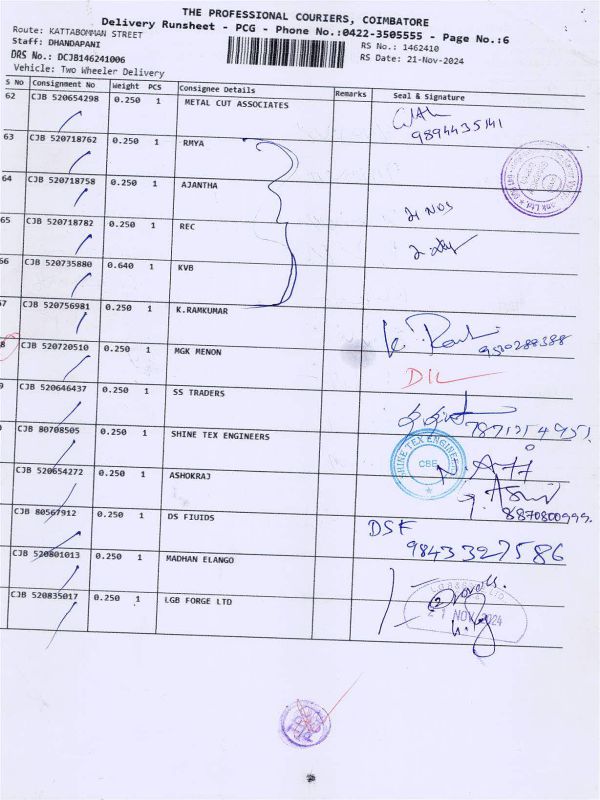 THE PROFESSIONAL COURIERS, COIMBATORE
Delivery Runsheet - PCG - Phone No.:0422-3505555 - Page No.:6
Route: KATTABOMMAN STREET
Staff: DHANDAPANI
RS No.: 1462410
DRS No.: DCJB146241006
RS Date: 21-Nov-2024
Vehicle: Two Wheeler Delivery
S No Consignment No Weight PCS Consignee Details Remarks Seal & Signature
62 CJB 520654298 0.250 1 METAL CUT ASSOCIATES
9894435141
63 CJB 520718762 0.250 1 RMYA
64 CJB 520718758 0.250 1 AJANTHA
21 NOS
65 CJB 520718782 0.250 1 REC
66 CJB 520735880 0.640 1 KVB
67 CJB 520756981 0.250 1 K.RAMKUMAR
9500288388
8 CJB 520720510 0.250 1 MGK MENON
DIL
9 CJB 520646437 0.250 1 SS TRADERS
0 CJB 80708505 0.250 1 SHINE TEX ENGINEERS
SHINE TEX ENGINEERS
CBE
CJB 520654272 0.250 1 ASHOKRAJ
8870800999.
CJB 80567912 0.250 1 DS FIUIDS
DSF
9843327586
CJB 520801013 0.250 1 MADHAN ELANGO
CJB 520835017 0.250 1 LGB FORGE LTD
21 NOV 2024